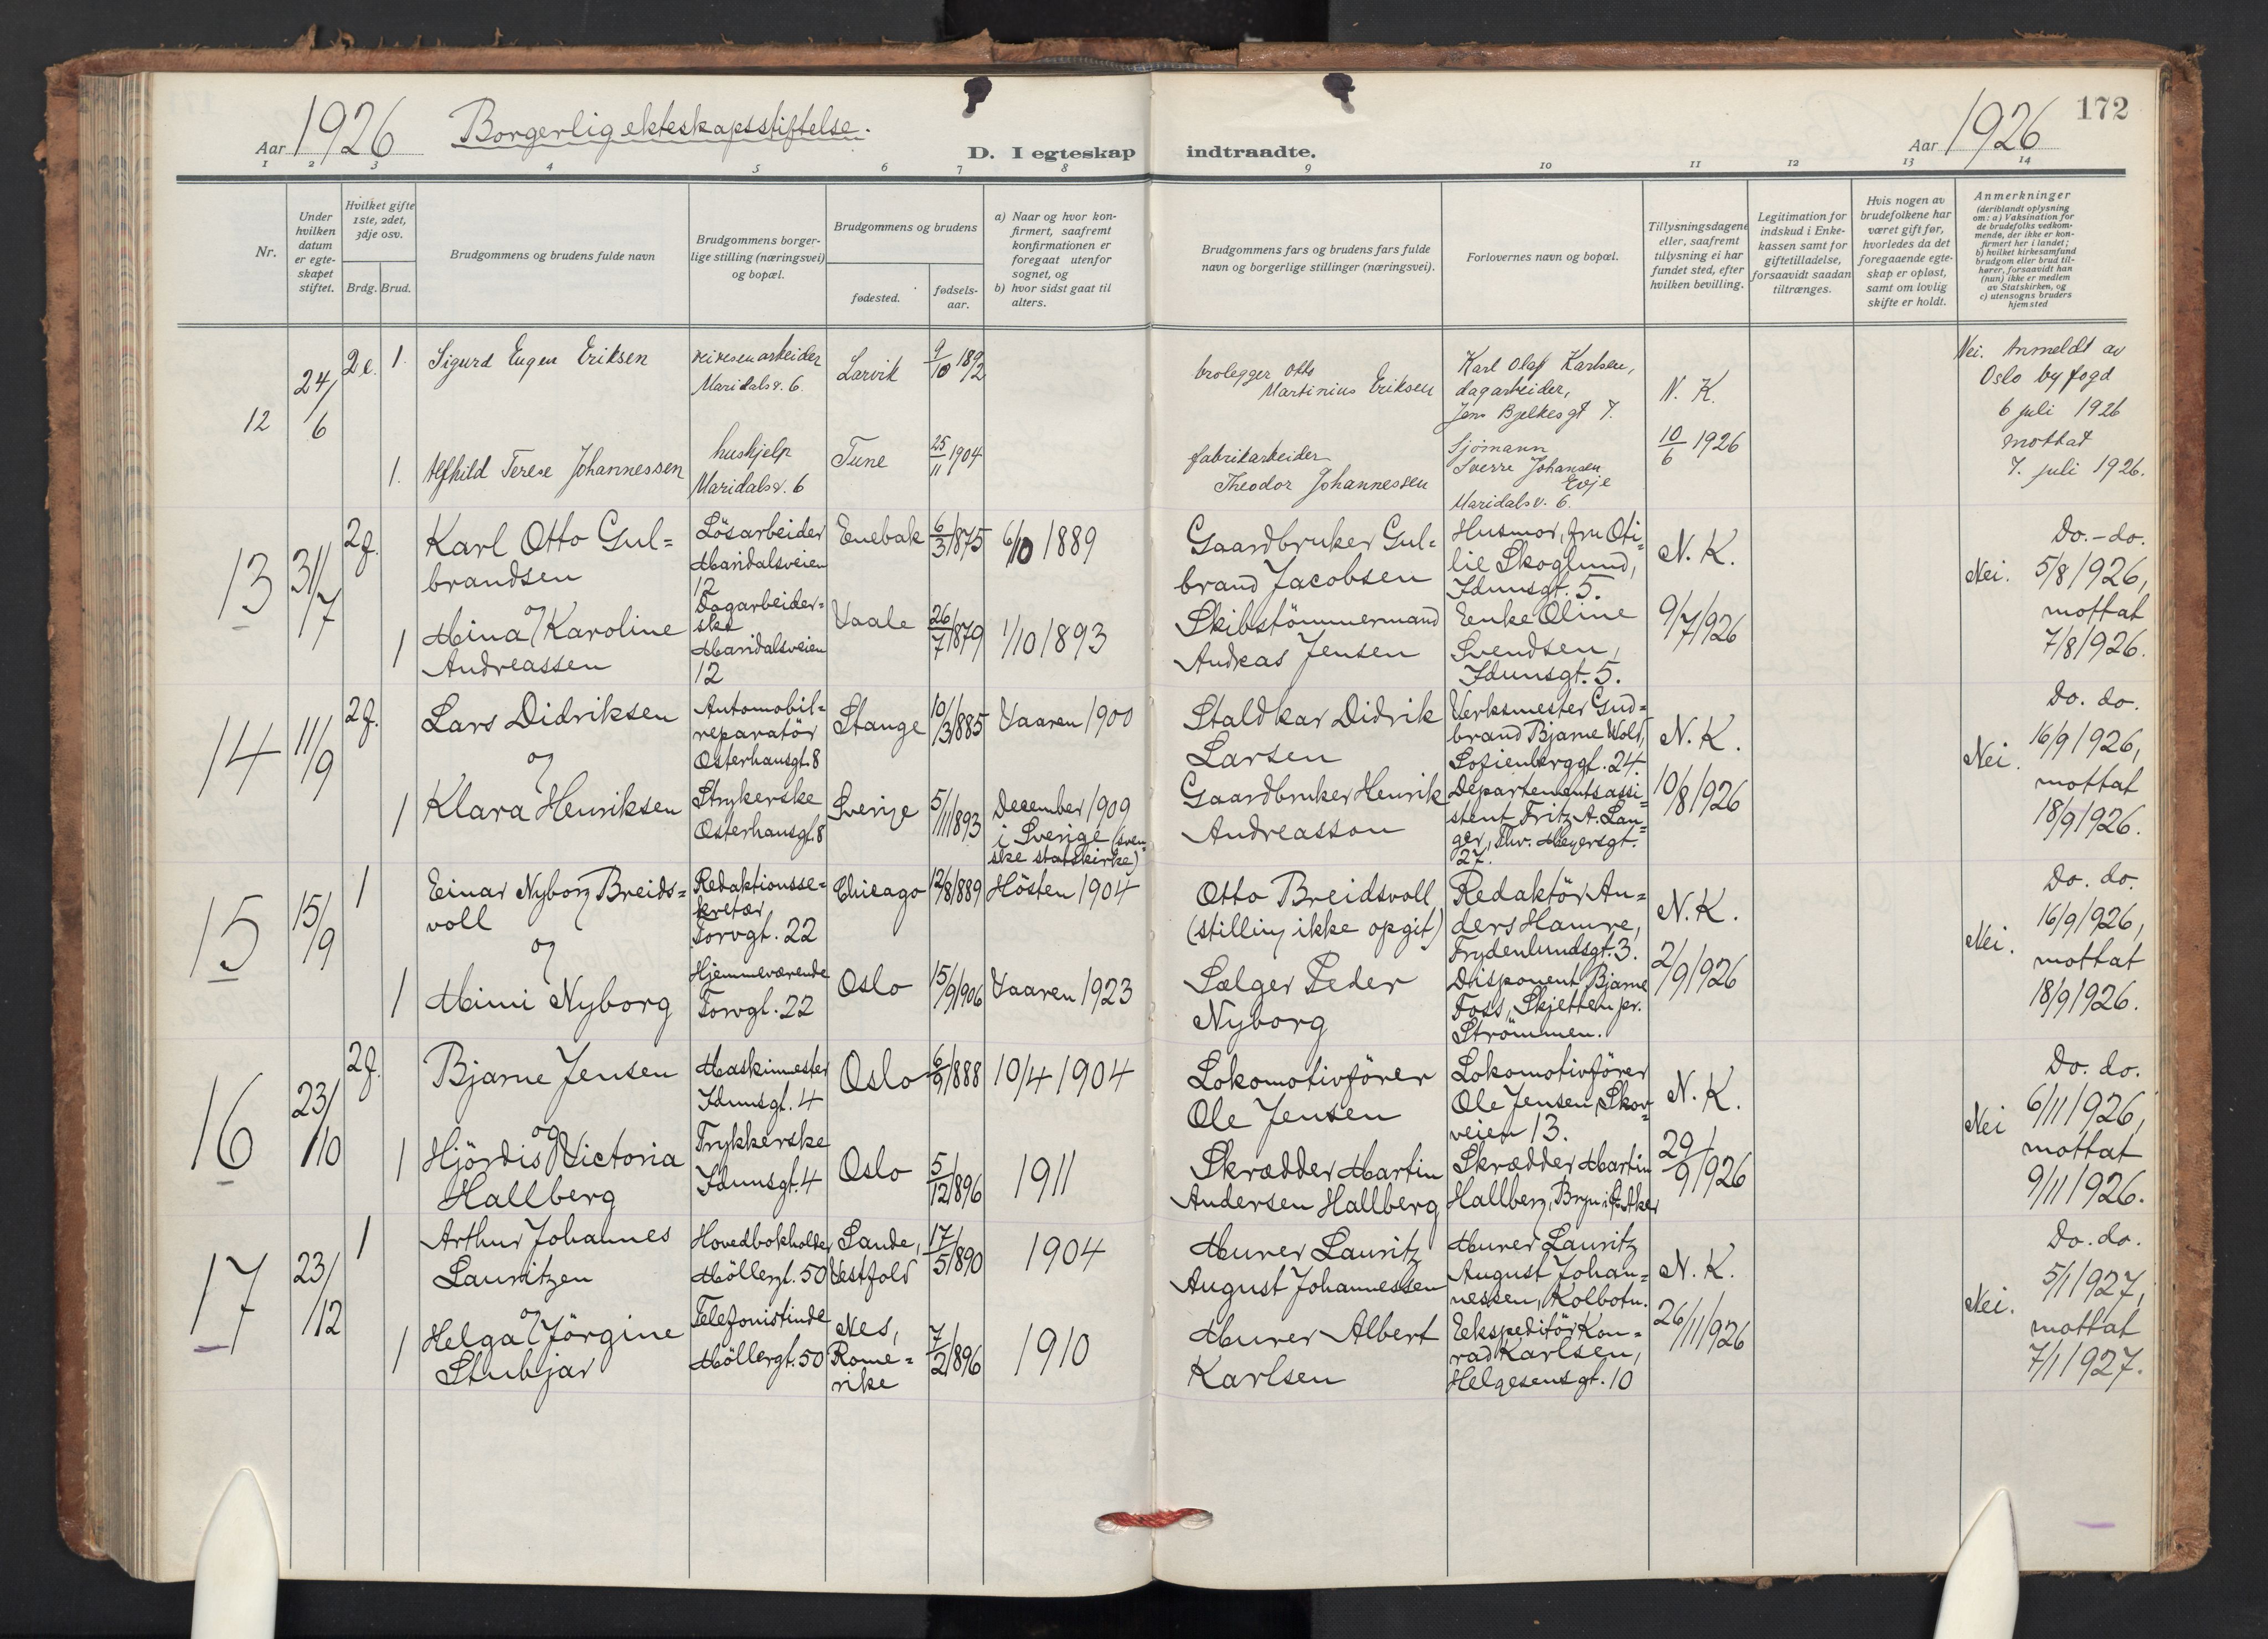 172
Aar 1926 Borgerlig ekteskapsstiftelse.
D. I egteskap indtraadte.
Aar 1926
1 2 3 4 5 6 7 8 9 10 11 12 13 14
Nr.
Under hvilken datum er egteskapet stiftet.
Hvilket gifte 1ste, 2det, 3dje osv.
Brdg. Brud.
Brudgommens og brudens fulde navn
Brudgommens borgerlige stilling (næringsvei) og bopæl.
Brudgommens og brudens
fødested.
fødselsaar.
a) Naar og hvor konfirmert, saafremt konfirmationen er foregaat utenfor sognet, og
b) hvor sidst gaat til alters.
Brudgommens fars og brudens fars fulde navn og borgerlige stillinger (næringsvei).
Forlovernes navn og bopæl.
Tillysningsdagene eller, saafremt tillysning ei har fundet sted, efter hvilken bevilling.
Legitimation for indskud i Enkekassen samt for giftetilladelse, forsaavidt saadan tiltrænges.
Hvis nogen av brudefolkene har været gift før, hvorledes da det foregaaende egteskap er opløst, samt om lovlig skifte er holdt.
Anmerkninger
(deriblandt oplysning om: a) Vaksination for de brudefolks vedkommende, der ikke er konfirmert her i landet; b) hvilket kirkesamfund brudgom eller brud tilhører, forsaavidt han (hun) ikke er medlem av Statskirken, og c) utensogns bruders hjemsted
12
24/6
2e.
1.
Sigurd Eugen Eriksen
Maridalsv. 6.
Larvik
9/10 1892
brolegger Otto
Martinius Eriksen
Karl Olaf Karlsen,
dagarbeider,
Jens Bjelkesgt 7.
N. K.
Nei. Anmeldt av
Oslo byfogd
6 juli 1926
mottat
7. juli 1926.
1.
Alfhild Terese Johannessen
hushjelp
Maridalsv. 6
Tune
25/11 1904
fabrikarbeider
Theodor Johannessen
Sjømann
Sverre Johansen
Evje
Maridalsv. 6.
10/6 1926
13
31/7
2g.
Karl Otto Gul=
brandsen
og
Lösarbeider
Maridalsveien
12
Enebak
6/3 1875
6/10 1889
Gaardbruker Gul=
brand Jacobsen
Husmor, fru Oti=
lie Skoglund,
Idunsgt. 5.
N. K.
Nei.
Do. - do.
5/8 1926,
mottat
7/8 1926.
1
Mina Karoline
Andreassen
Dagarbeider=
ske
Maridalsveien
12
Vaale
26/7 1879
1/10 1893
Skibstömmermand
Andreas Jensen
Enke Oline
Svendsen,
Idunsgt. 5.
9/7 1926
14
11/9
2g.
Lars Didriksen
og
Automobil=
reparatör
Osterhausgt. 8
Stange
10/3 1885
Vaaren 1900
Staldkar Didrik
Larsen
Verksmester Gud=
brand Bjarne Wold,
Sofienberggt. 24
N. K.
Nei.
Do. do.
16/9 1926,
mottat
18/9 1926.
1
Klara Henriksen
Strykerske
Osterhausgt. 8
Sverige
5/11 1893
Desember 1909
i Sverige (sven=
ske statskirke)
Gaardbruker Henrik
Andreasson
Departementsassi=
stent Fritz A. Lan=
ger, Thv. Meyersgt.
27.
10/8 1926
15
15/9
1
Einar Nyborg Breids=
voll
og
Redaktionsse=
kretær,
Torvgt. 22
Chicago
12/8 1889
Hösten 1904
Otto Breidsvoll
(stilling ikke opgit)
Redaktör An=
ders Hamre,
Frydenlundsgt. 3.
N. K.
Nei.
Do. do.
16/9 1926,
mottat
18/9 1926.
1
Mimi Nyborg
Hjemmeværende
Torvgt. 22
Oslo
15/9 1906
Vaaren 1923
Sælger Peder
Nyborg
Disponent Bjarne
Foss, Skjetten pr.
Strömmen.
2/9 1926
16
23/10
2g.
Bjarne Jensen
og
Maskinmester
Idunsgt. 4
Oslo
6/9 1888
10/4 1904
Lokomotivförer
Ole Jensen
Lokomotivförer
Ole Jensen, Skov=
veien 13.
N. K.
Nei
Do. do.
6/11 1926,
mottat
9/11 1926.
1
Hjördis Victoria
Hallberg
Trykkerske
Idunsgt. 4
Oslo
5/12 1896
1911
Skrædder Martin
Andersen Hallberg
Skrædder Martin
Hallberg, Bryn i Ø. Aker
29/9 1926
17
23/12
1
Arthur Johannes
Lauritzen
og
Hovedbokholder
Möllergt. 50
Sande,
Vestfold
17/5 1890
1904
Murer Lauritz
August Johannessen
Murer Lauritz
August Johan=
nessen, Kolbotn.
N. K.
Nei.
Do. do.
5/1 1927,
mottat
7/1 1927.
1
Helga Jörgine
Stubjar
Telefonistinde
Möllergt. 50
Nes,
Rome=
rike
7/2 1896
1910
Murer Albert
Karlsen
Ekspeditör Kon=
rad Karlsen,
Helgesensgt. 10
26/11 1926